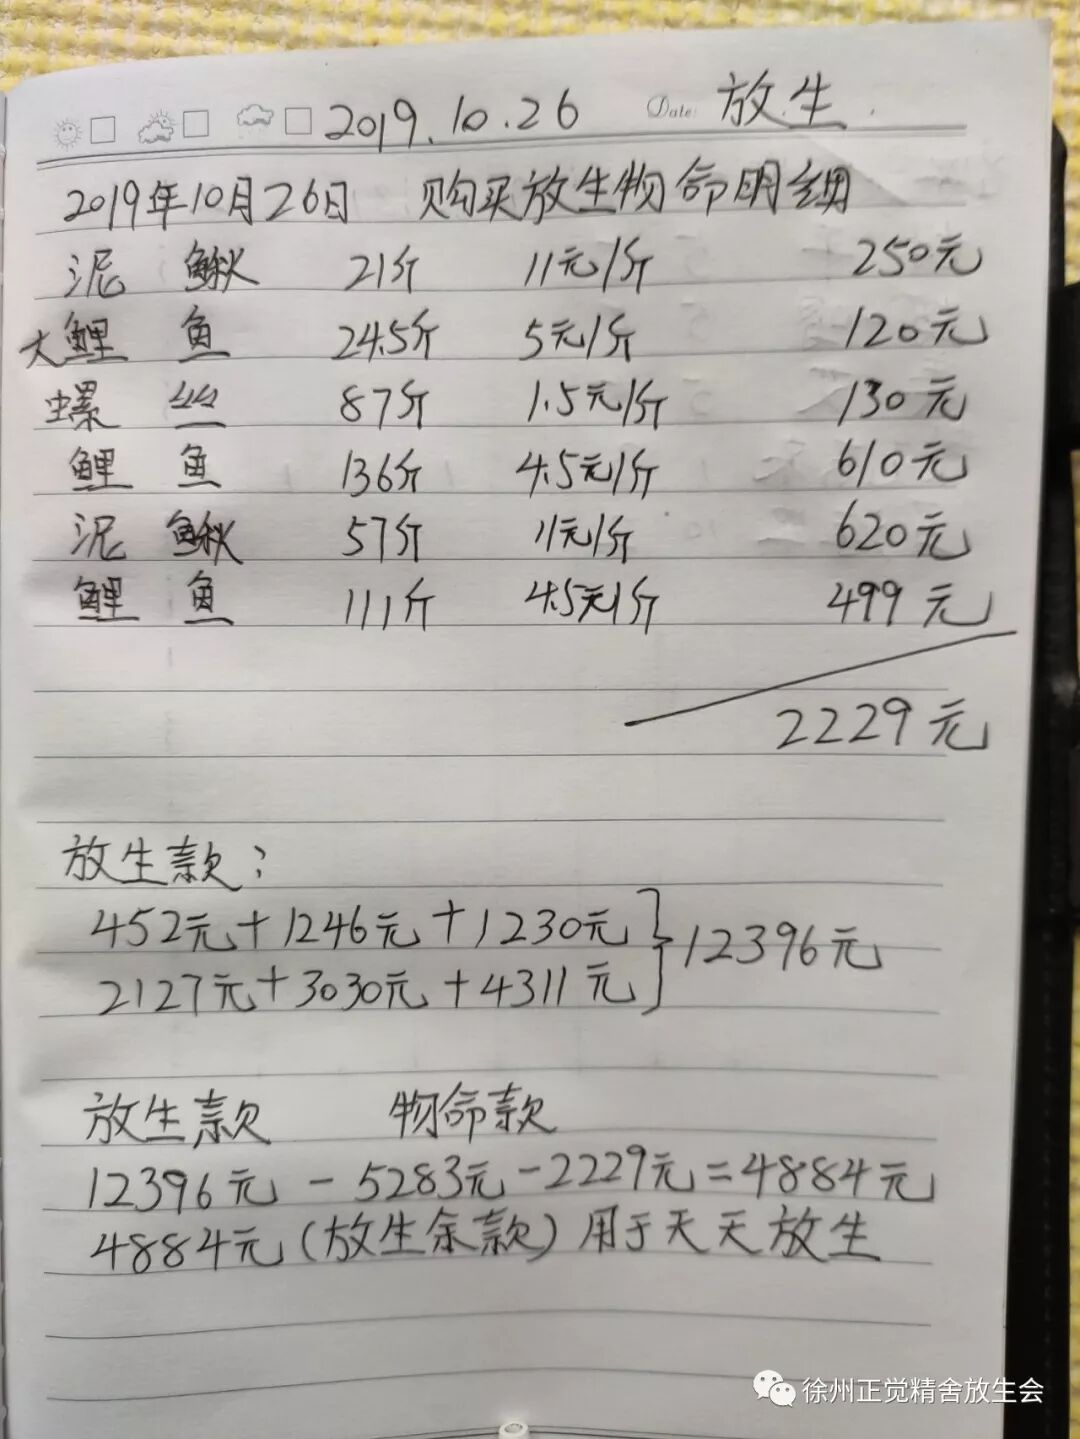 2019.10.26 Date: 放生.
2019年10月26日 购买放生物命明细
泥鳅 21斤 11元/斤 250元
大鲤鱼 24.5斤 5元/斤 120元
螺丝 87斤 1.5元/斤 130元
鲤鱼 136斤 4.5元/斤 610元
泥鳅 57斤 11元/斤 620元
鲤鱼 111斤 4.5元/斤 499元
2229元
放生款：
452元+1246元+1230元
2127元+3030元+4311元
12396元
放生款 物命款
12396元-5283元-2229元=4884元
4884元(放生余款)用于天天放生
徐州正觉精舍放生会